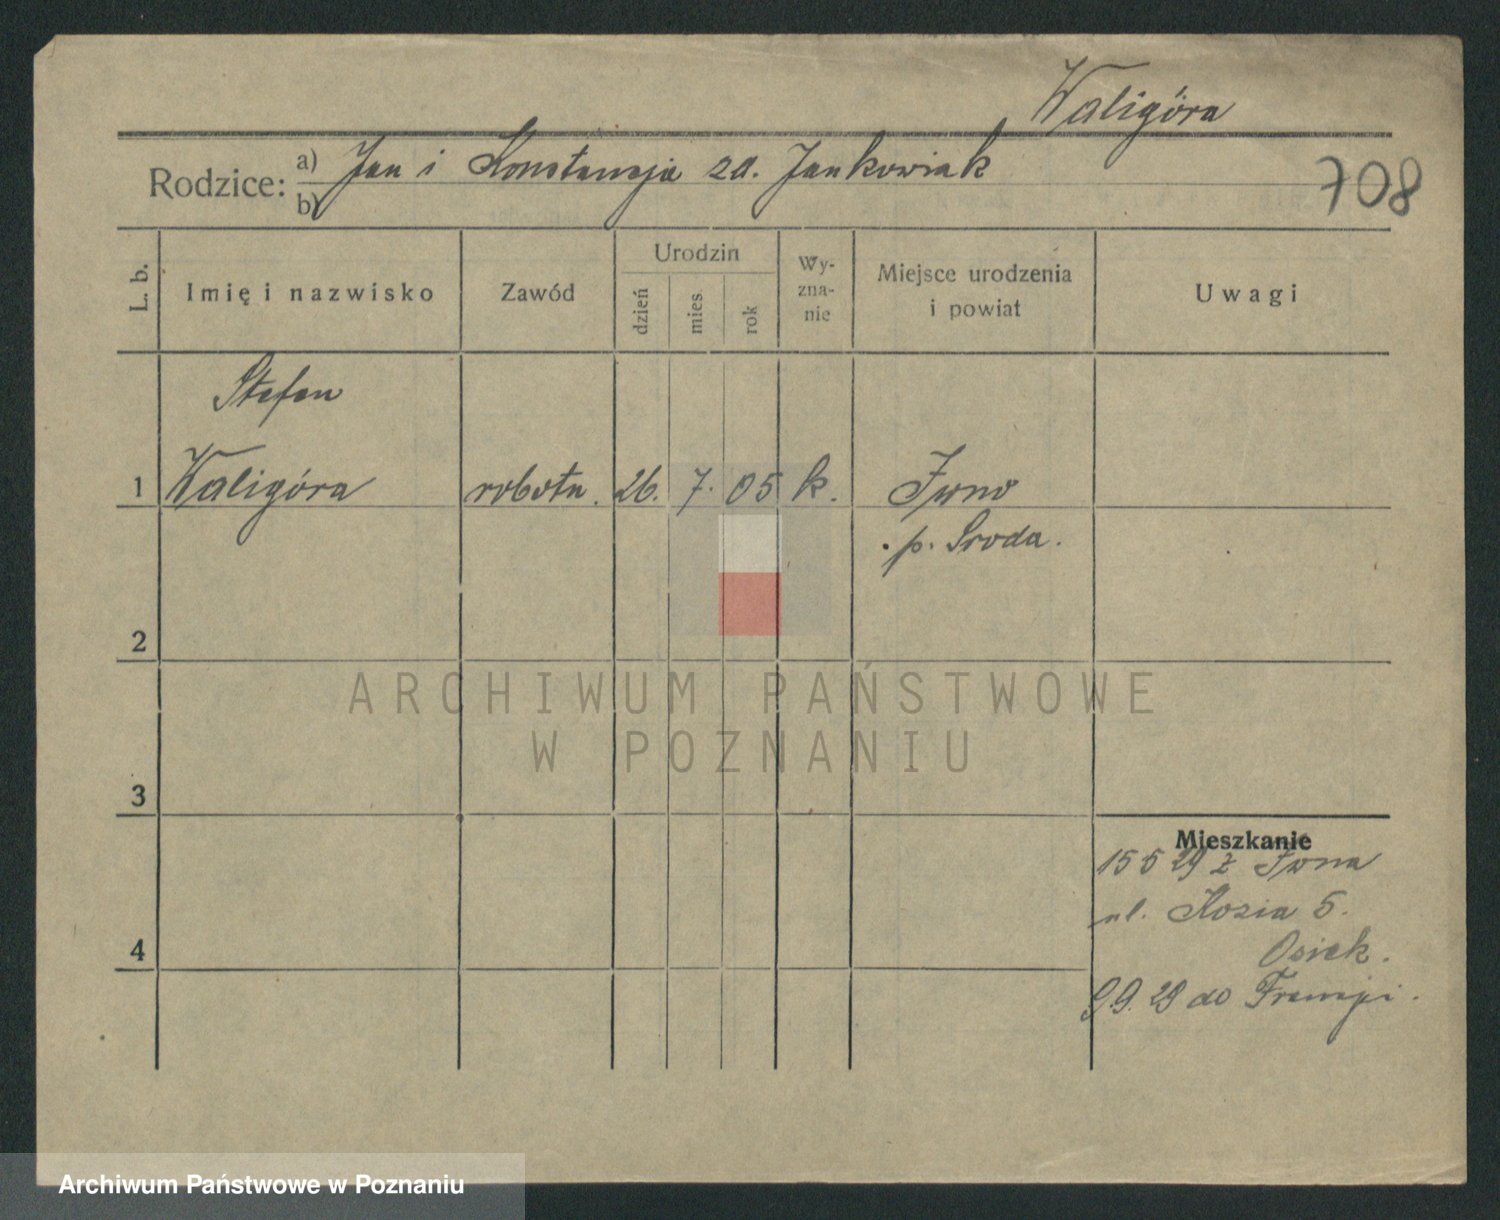 Waligóra
Rodzice: a) Jan i Konstancja zd. Jankowiak
b)
708
L. b.
Imię i nazwisko
Zawód
Urodzin
dzień
mies
rok
Wy-
zna-
nie
Miejsce urodzenia
i powiat
Uwagi
Stefan
1 Waligóra robotn. 26. 7. 05 k. Iwno
p. Środa.
2
ARCHIWUM PAŃSTWOWE
W POZNANIU
3
Mieszkanie
15 5 29 z Iwna
ul. Kozia 5.
Osiek.
4
9.9.29 do Francji.
Archiwum Państwowe w Poznaniu